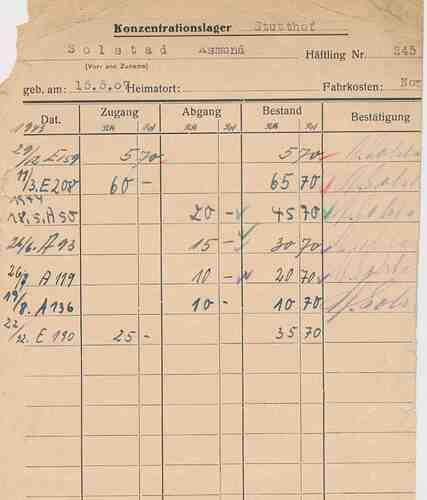 Konzentrationslager Stutthof
Solstad Asmund Häftling Nr. 245
(Vor- und Zuname)
geb. am: 15.5.07 Heimatort: Fahrkosten: Nor
Dat. Zugang Abgang Bestand Bestätigung
1943 RM Pf RM Pf RM Pf
29/12 E 159 5 70 5 70
11/3. E 200 60 - 65 70
1944
18.5. A 50 20 - 45 70
26/6. A 93 15 - 30 70
26/7 A 119 10 - 20 70
19/8. A 136 10 - 10 70
22/12. E 190 25 - 35 70